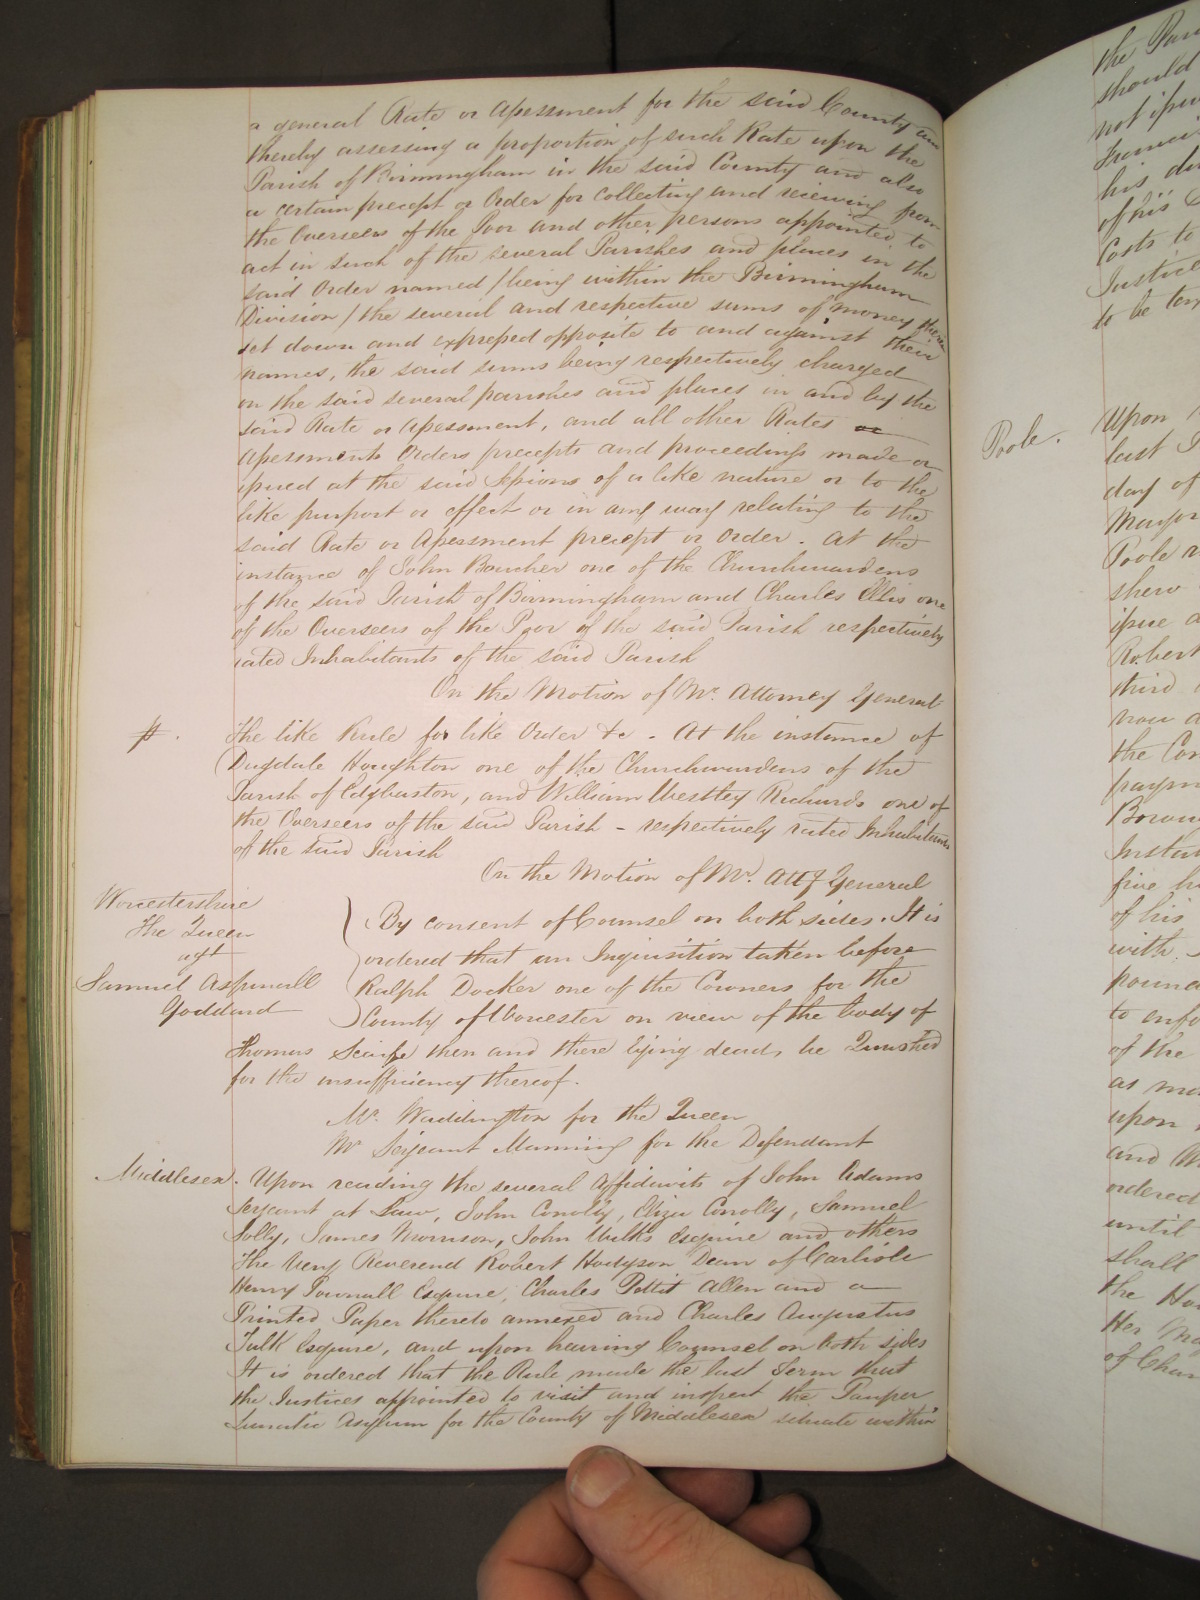 a general Rate or Assessment for the said County and
thereby assessing a proportion of such Rate upon the
Parish of Birmingham in the said County and also
a certain precept or Order for collecting and receiving from
the Overseers of the Poor and other persons appointed to
act in such of the several Parishes and places in the
said Order named / being within the Birmingham
Division / the several and respective sums of money therein
set down and expressed opposite to and against their
names, the said sums being respectively charged
on the said several parishes and places in and by the
said Rate or Assessment, and all other Rates or
Assessments Orders precepts and proceedings made or
issued at the said Sessions of a like nature or to the
like purport or effect or in any way relating to the
said Rate or Assessment precept or Order. At the
instance of John Boucher one of the Churchwardens
of the said Parish of Birmingham and Charles Ellis one
of the Overseers of the Poor of the said Parish respectively
rated Inhabitants of the said Parish
On the Motion of Mr. Attorney General
The like Rule for like Order &c - At the instance of
Dugdale Houghton one of the Churchwardens of the
Parish of Edgbaston, and William Westley Richards one of
the Overseers of the said Parish - respectively rated Inhabitants
of the said Parish
On the Motion of Mr. Atty General
Worcestershire
The Queen
agt
Samuel Aspinall
Goddard
By consent of Counsel on both sides. It is
ordered that an Inquisition taken before
Ralph Docker one of the Coroners for the
County of Worcester on view of the body of
Thomas then and there lying dead, be Quashed
for the insufficiency thereof.
Mr. Waddington for the Queen
Mr Serjeant Manning for the Defendant
Middlesex. Upon reading the several Affidavits of John Adams
Serjeant at Law, John Conolly, Eliza Conolly, Samuel
Solly, James Morrison, John Wilks Esquire and others
The Very Reverend Robert Hodgson Dean of Carlisle
Henry Pownall Esquire, Charles Pettit Allen and a
Printed Paper thereto annexed and Charles Augustus
Tulk Esquire, and upon hearing Counsel on both sides
It is ordered that the Rule made the last Term that
the Justices appointed to visit and inspect the Pauper
Lunatic Asylum for the County of Middlesex situate within
the
should
not
his
of his
Costs to
Justice
to be
Poole.
Upon
last
day of
Mayor
Poole
shew
issue
Robert
third
the
Borou
of his
with
pound
to enfo
of the
as
upon
and
ordered
until
shall
the
Her
of